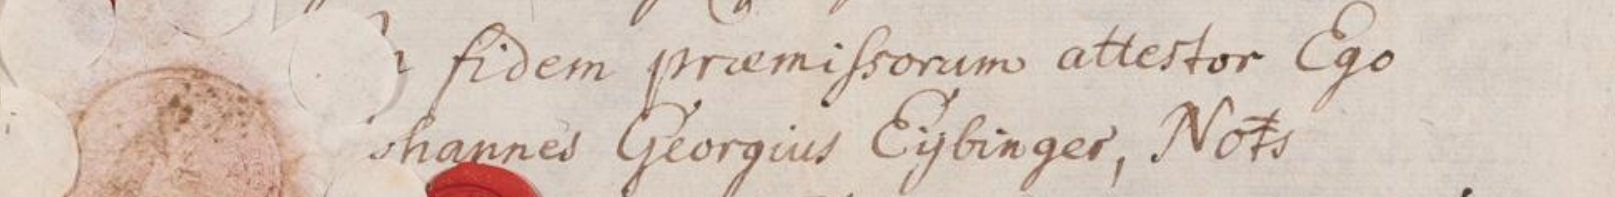 fidem præmissorum attestor Ego
Georgius Eybinger, Nots